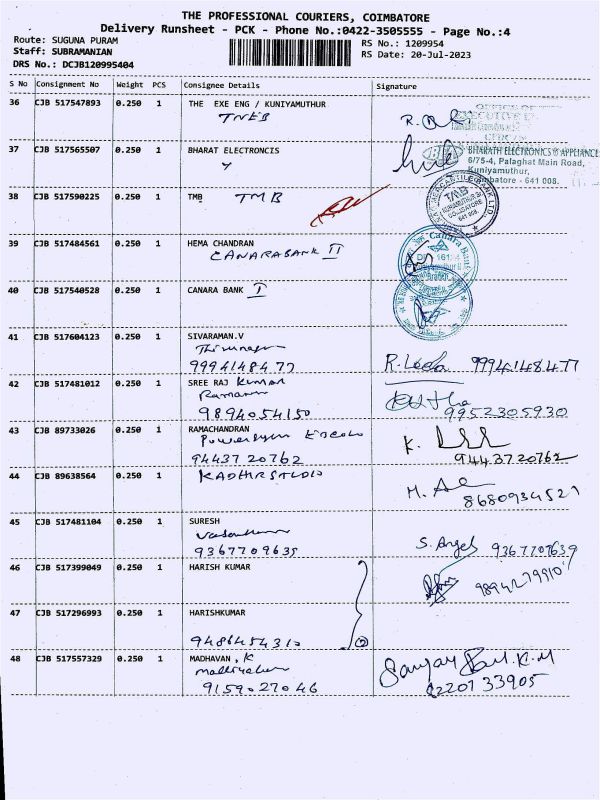 THE PROFESSIONAL COURIERS, COIMBATORE
Delivery Runsheet - PCK - Phone No.:0422-3505555 - Page No.:4
Route: SUGUNA PURAM
Staff: SUBRAMANIAN
DRS No.: DCJB120995404
RS No.: 1209954
RS Date: 20-Jul-2023
S No Consignment No Weight PCS Consignee Details Signature
36 CJB 517547893 0.250 1 THE EXE ENG / KUNIYAMUTHUR
TNEB
37 CJB 517565507 0.250 1 BHARAT ELECTRONCIS
BHARATH ELECTRONICS & APPLIANCE
6/75-4, Palaghat Main Road,
Kuniyamuthur,
Coimbatore - 641 008.
38 CJB 517590225 0.250 1 TMB TMB
TMB
39 CJB 517484561 0.250 1 HEMA CHANDRAN
CANARA BANK II
Canara Bank
40 CJB 517540528 0.250 1 CANARA BANK I
41 CJB 517604123 0.250 1 SIVARAMAN.V
9994148477 R. Leela 9994148477
42 CJB 517481012 0.250 1 SREE RAJ Kumar
9894054150 9952305930
43 CJB 89733026 0.250 1 RAMACHANDRAN
9443720762 K. 9443720762
44 CJB 89638564 0.250 1 KADHR STUDIO
M. 8680934521
45 CJB 517481104 0.250 1 SURESH
9367709635 S. Angel 9367707639
46 CJB 517399049 0.250 1 HARISH KUMAR
9894279910
47 CJB 517296993 0.250 1 HARISHKUMAR
9486454312 2
48 CJB 517557329 0.250 1 MADHAVAN.K
9159027046 Sanjay K.M
82207 33905